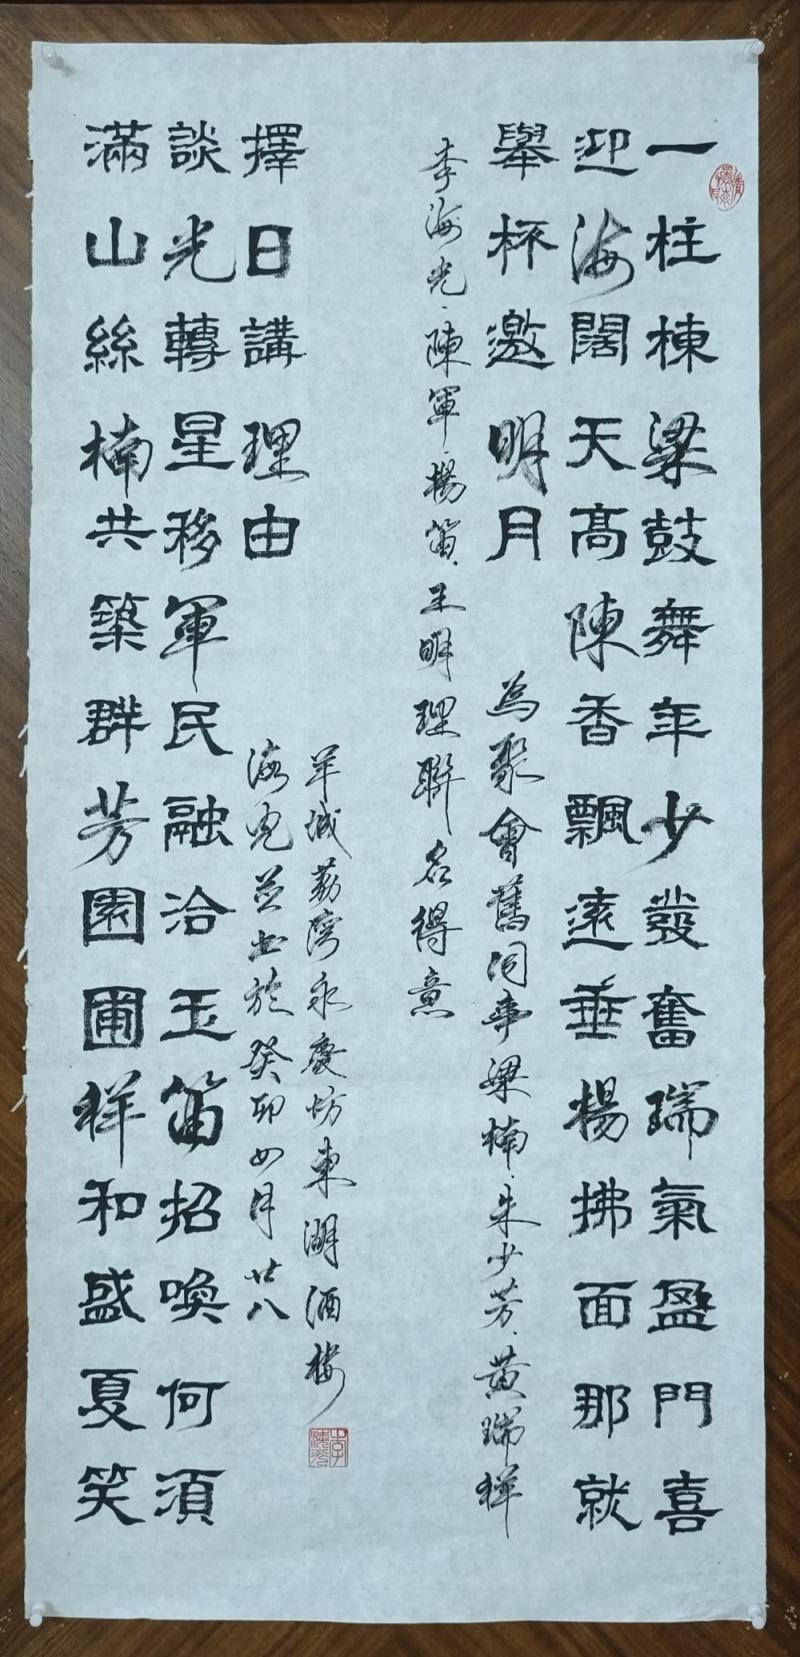 一柱棟梁鼓舞年少發奮瑞氣盈門喜
迎海闊天高陳香飄遠垂楊拂面那就
舉杯邀明月
為聚會舊同事梁楠、朱少芳、黃瑞祥
李海光、陳軍、楊笛、王明理聯名得意
滿山絲楠共築群芳園圃祥和盛夏笑
談光轉星移軍民融洽玉笛招喚何須
擇日講理由
海光並書於癸卯如月廿八
羊城荔灣永慶坊東湖酒樓